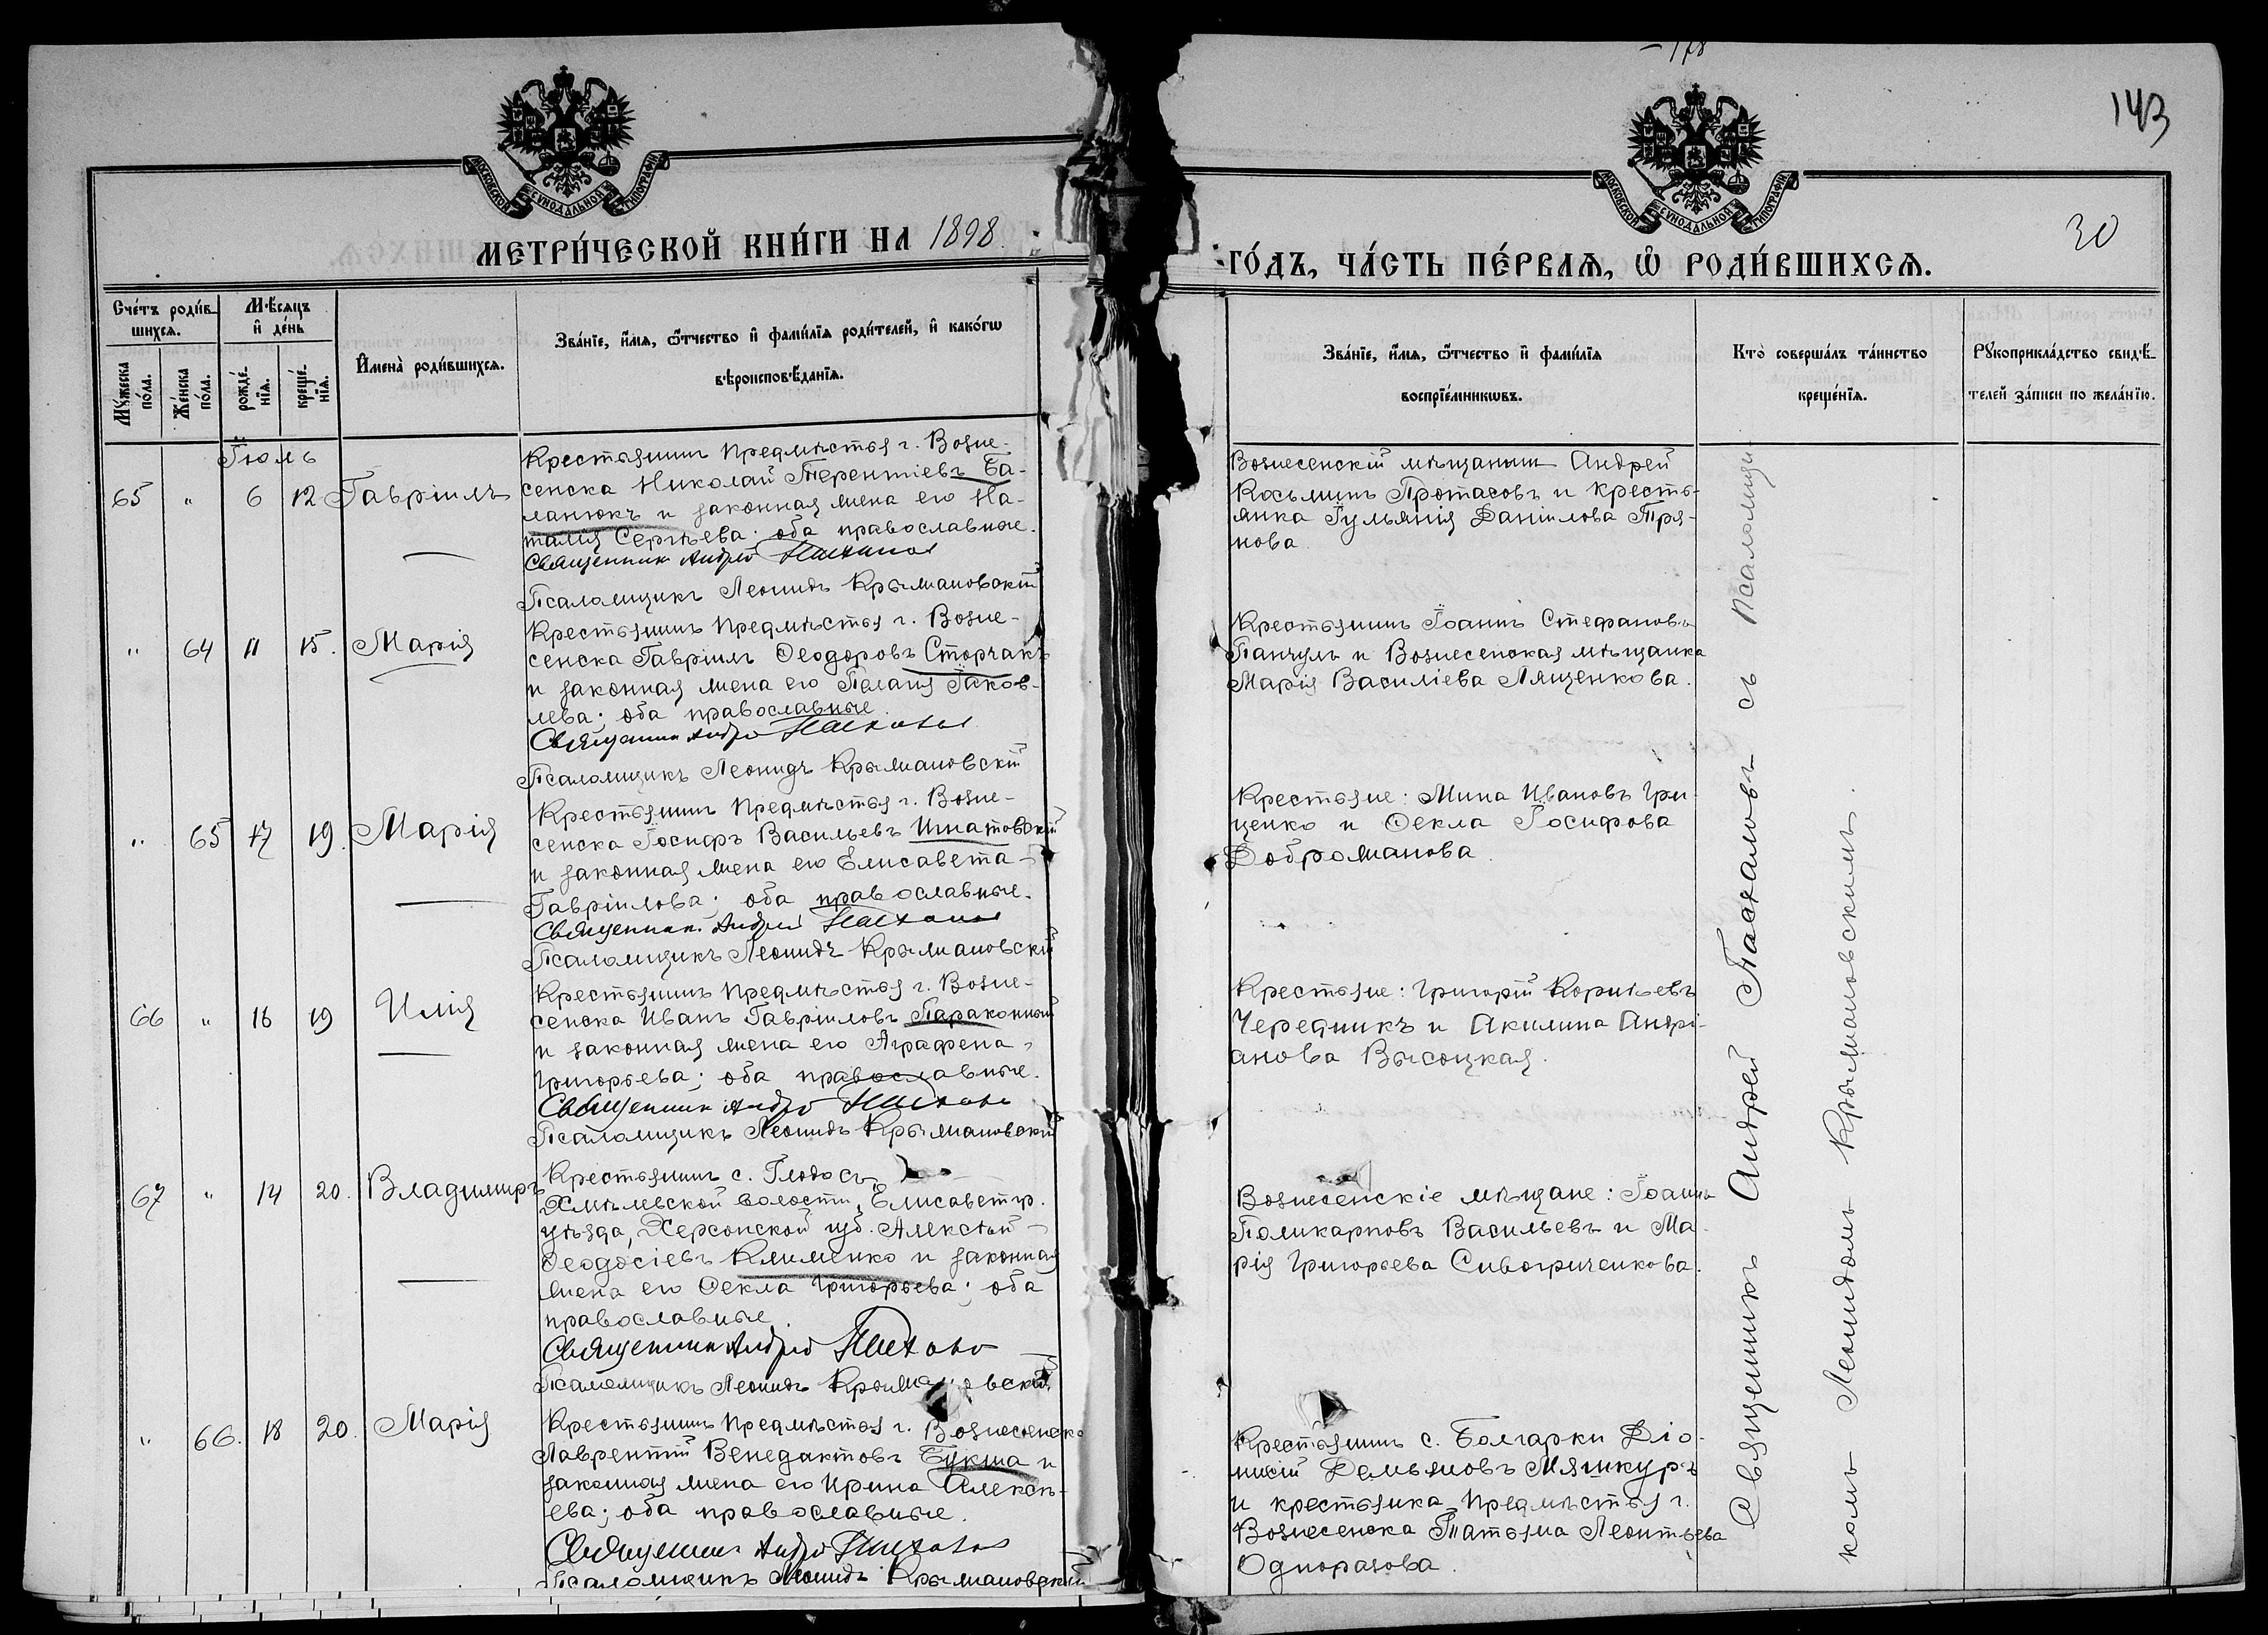 178
143
30
МОСКОВСКОЙ СѴНОДАЛЬНОЙ ТИПОГРАФІИ
МОСКОВСКОЙ СѴНОДАЛЬНОЙ ТИПОГРАФІИ
МЕТРИ́ЧЕСКОЙ КНИ́ГИ НА 1898.
ГО́ДЪ, ЧА́СТЬ ПЕ́РВАѦ, Ѽ РОДИ́ВШИХСѦ.
Сче́тъ роди́в-
шихсѧ.
Мꙋ́жеска по́ла.
Же́нска по́ла.
Мѣ́сѧцъ
и҆ де́нь
рожде́-
нїѧ.
креще́-
нїѧ.
И҆мена̀ роди́вшихсѧ.
Зва́нїе, и҆́мѧ, ѻ҆́тчество и҆ фами́лїѧ роди́телей, и҆ како́гѡ
вѣроисповѣ́данїѧ.
Зва́нїе, и҆́мѧ, ѻ҆́тчество и҆ фами́лїѧ
воспрїе́мникѡвъ.
Кто̀ соверша́лъ та́инство
креще́нїѧ.
Рꙋкоприкла́дство свидѣ́-
телей за́писи по жела́нїю.
Іюль
65 " 6 12 Гавріилъ
Крестьянинъ предмѣстья г. Возне-
сенска Николай Терентіевъ Ба-
ланюкъ и законная жена его На-
талія Сергѣева; оба православные.
Священникъ Андрей
Псаломщикъ Леонидъ Крыжановскій
Вознесенскій мѣщанинъ Андрей
Козьминъ Протасовъ и кресть-
янка Іульянія Даніилова Тря-
нова.
" 64 11 15. Марія
Крестьянинъ предмѣстья г. Возне-
сенска Гавріилъ Ѳеодоровъ Сторчакъ
и законная жена его Пелагія Іаков-
лева; оба православные.
Священникъ Андрей
Псаломщикъ Леонидъ Крыжановскій
Крестьянинъ Іоаннъ Стефановъ
Панчулъ и Вознесенская мѣщанка
Марія Василіева Лященкова.
" 65 17 19. Марія
Крестьянинъ предмѣстья г. Возне-
сенска Іосифъ Васильевъ Игнатовскій
и законная жена его Елисавета
Гавріилова; оба православные.
Священникъ Андрей
Псаломщикъ Леонидъ Крыжановскій
Крестьяне: Мина Ивановъ Гри-
ценко и Ѳекла Іосифова
Доброжанова.
66 " 16 19 Илія
Крестьянинъ предмѣстья г. Возне-
сенска Иванъ Гавріиловъ Параконный
и законная жена его Аграфена
Григорьева; оба православные.
Священникъ Андрей
Псаломщикъ Леонидъ Крыжановскій
Крестьяне: Григорій Корнѣевъ
Чередникъ и Акилина Андрі-
анова Высоцкая.
67 " 14 20. Владимиръ
Крестьянинъ с. Глодосъ
Хмѣлевской волости, Елисаветгр.
уѣзда, Херсонской губ. Алексѣй
Ѳеодосіевъ Клименко и законная
жена его Ѳекла Григорьева; оба
православные.
Священникъ Андрей
Псаломщикъ Леонидъ Крыжановскій
Вознесенскіе мѣщане: Іоаннъ
Поликарповъ Васильевъ и Ма-
рія Григорьева Сивогриченкова.
" 66. 18 20. Марія
Крестьянинъ предмѣстья г. Вознесенска
Лаврентій Венедиктовъ Букша и
законная жена его Ирина Алексѣ-
ева; оба православные.
Священникъ Андрей
Псаломщикъ Леонидъ Крыжановскій
Крестьянинъ с. Болгарки Діо-
нисій Демьяновъ Мяшкуръ
и крестьянка предмѣстья г.
Вознесенска Татьяна Леонтьева
Одноразова.
Священникъ Андрей съ псаломщи-
комъ Леонидомъ Крыжановскимъ.